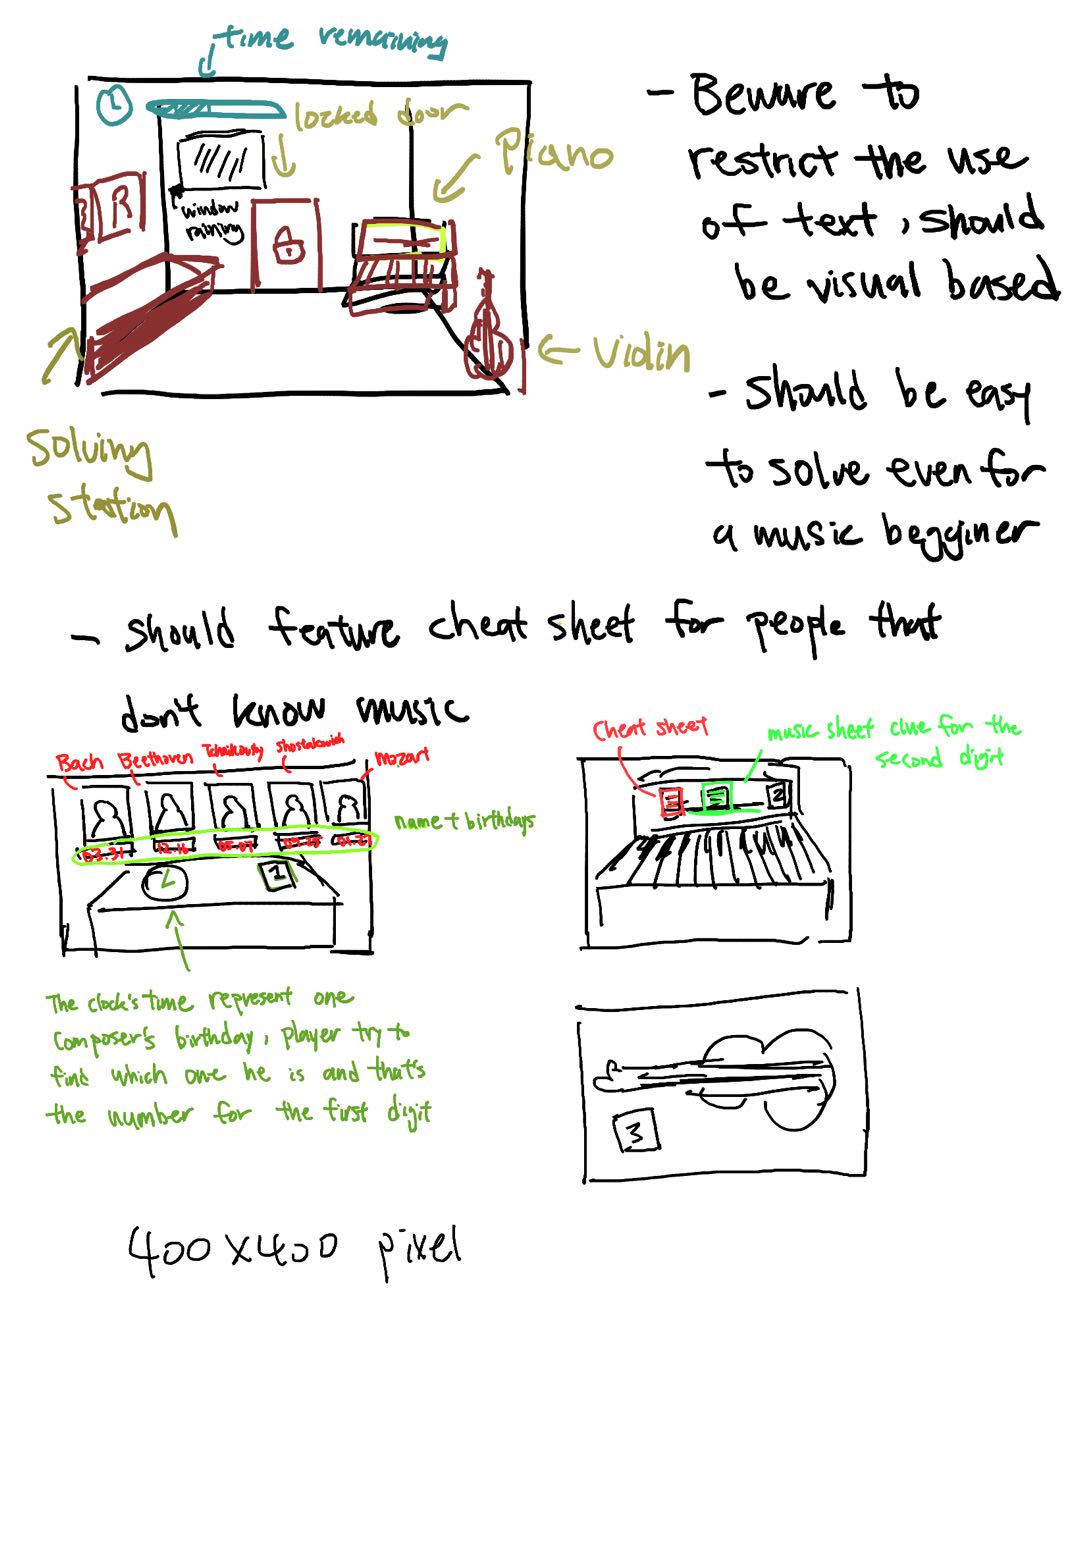 time remaining
locked door
Piano
window
raining
R
Violin
Solving
station
- Beware to
restrict the use
of text, should
be visual based
- should be easy
to solve even for
a music begginer
- should feature cheat sheet for people that
don't know music
Bach
Beethoven
Tchaikovsky
Shostakovich
Mozart
03.31
12.16
05.07
09.25
01.27
name + birthdays
1
The clock's time represent one
composer's birthday, player try to
find which one he is and that's
the number for the first digit
Cheat sheet
music sheet clue for the
second digit
2
3
400x400 pixel